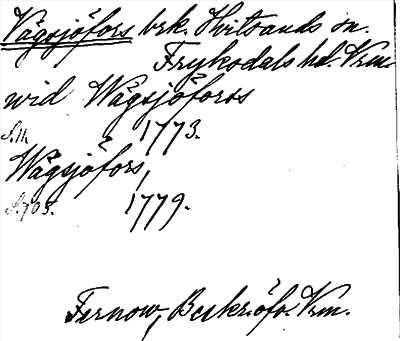 Vägsjöfors brk. Hvitsands sn.
Frykodals hd. Vrm.
wid Wägsjöforss
S.11. 1773.
Wägsjöfors,
S.703. 1779.
Fernow, Beskr. öfv. Vrm.